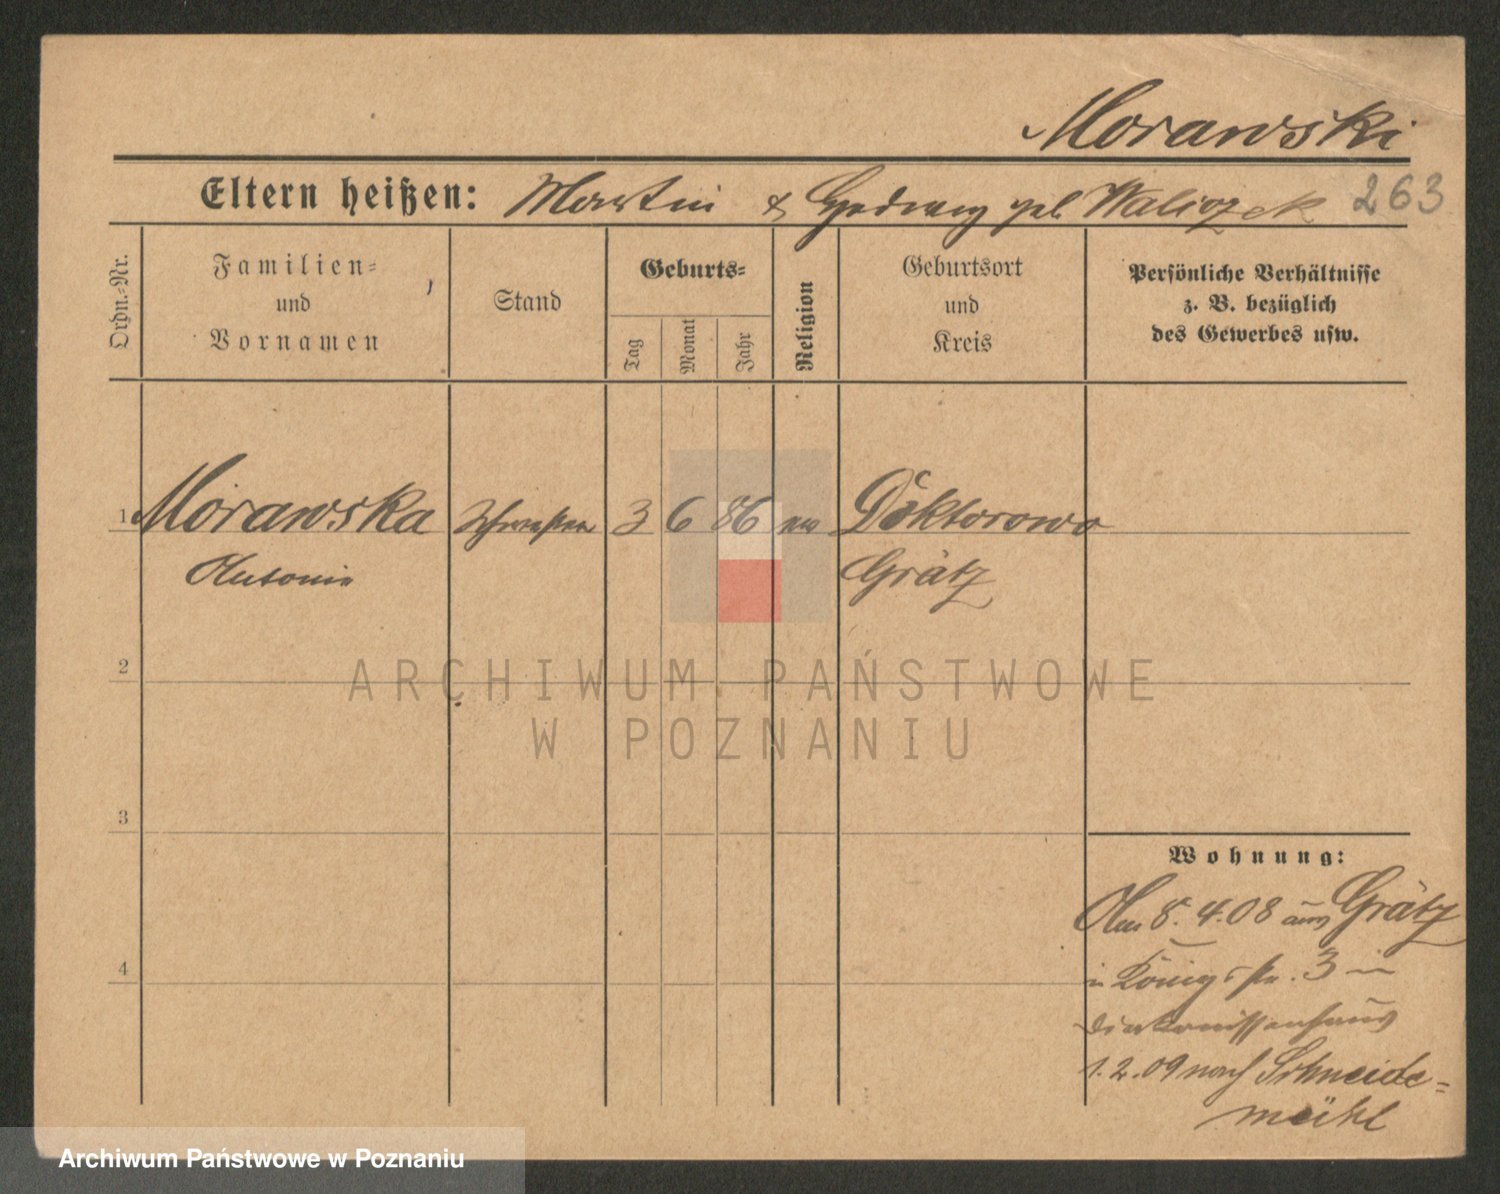 Morawski
Eltern heißen: Martin & Hedwig geb. Waliczek 263
Ordn.-Nr.
Familien-
und
Vornamen
Stand
Geburts-
Tag
Monat
Jahr
Religion
Geburtsort
und
Kreis
Persönliche Verhältnisse
z. B. bezüglich
des Gewerbes usw.
1 Morawska Schwester 3 6 86 ev Doktorowo
Antonie Grätz
2
3
4
Wohnung:
Am 8.4.08 aus Grätz
in Königstr. 3 in
Diakonissenhaus
1.2.09 nach Schneide=
mühl
ARCHIWUM PAŃSTWOWE
W POZNANIU
Archiwum Państwowe w Poznaniu